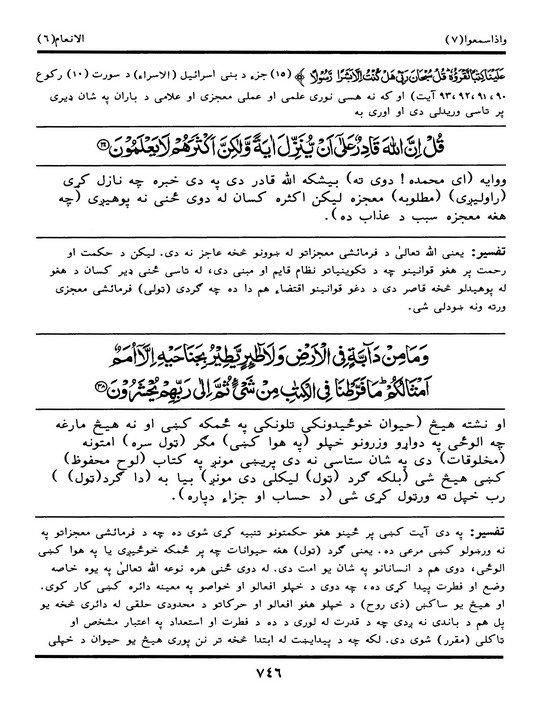 واذاسمعوا(٧) الانعام(٦)
عَلَيْنَا كِتٰبًا نَّقْرَؤُهٗ قُلْ سُبْحَانَ رَبِّيْ هَلْ كُنْتُ اِلَّا بَشَرًا رَّسُوْلًا ﴾ (١٥) جزء د بنی اسرائیل (الاسراء) د سورت (١٠) رکوع
٩٠، ٩١، ٩٢، ٩٣ آیت) او که نه هسی نوری علمی او عملی معجزی او علامی د باران په شان ډیری
پر تاسی وریدلی دی او اوری به
قُلْ اِنَّ اللّٰهَ قَادِرٌ عَلٰٓى اَنْ يُّنَزِّلَ اٰيَةً وَّلٰكِنَّ اَكْثَرَهُمْ لَا يَعْلَمُوْنَ
ووایه (ای محمده! دوی ته) بیشکه الله قادر دی په دی خبره چه نازل کړی
(راولیږی) (مطلوبه) معجزه لیکن اکثره کسان له دوی ځنی نه پوهیږی (چه
هغه معجزه سبب د عذاب ده).
تفسیر: یعنی الله تعالیٰ د فرمائشی معجزاتو له ښوونو څخه عاجز نه دی. لیکن د حکمت او
رحمت پر هغو قوانینو چه د تکوینیاتو نظام قایم او مبنی دی، له تاسی ځنی ډیر کسان د هغو
له پوهیدلو څخه قاصر دی د دغو قوانینو اقتضاء هم دا ده چه ګردی (تولی) فرمائشی معجزی
ورته ونه ښودلی شی.
وَمَا مِنْ دَآبَّةٍ فِى الْاَرْضِ وَلَا طٰٓئِرٍ يَّطِيْرُ بِجَنَاحَيْهِ اِلَّآ اُمَمٌ
اَمْثَالُكُمْ ؕ مَا فَرَّطْنَا فِى الْكِتٰبِ مِنْ شَىْءٍ ثُمَّ اِلٰى رَبِّهِمْ يُحْشَرُوْنَ ﴿٣٨﴾
او نشته هیڅ (حیوان خوځیدونکی تلونکی په ځمکه کښی او نه هیڅ مارغه
چه الوځی په دواړو وزرونو خپلو (په هوا کښی) مګر (ټول سره) امتونه
(مخلوقات) دی په شان ستاسی نه دی پریښی مونږ په کتاب (لوح محفوظ)
کښی هیڅ شی (بلکه ګرد (ټول) لیکلی دی مونږ) بیا به (دا ګرد(ټول) )
رب خپل ته ورټول کړی شی (د حساب او جزاء دپاره).
تفسیر: په دی آیت کښی پر ځینو هغو حکمتونو تنبیه کړی شوی ده چه د فرمائشی معجزاتو په
نه ورښولو کښی مرعی ده. یعنی ګرد (ټول) هغه حیوانات چه پر ځمکه خوځیږی یا په هوا کښی
الوځی، دوی هم د انسانانو په شان یو امت دی. له دوی ځنی هره نوعه الله تعالیٰ په یوه خاصه
وضع او فطرت پیدا کړی ده، چه دوی د خپلو افعالو او خواصو په معینه دائره کښی کار کوی.
او هیڅ یو ساکښ (ذی روح) د خپلو هغو افعالو او حرکاتو د محدودی حلقی له دائری څخه یو
پل هم د باندی نه ږدی چه د قدرت له لوری د ده د فطرت او استعداد په اعتبار مشخص او
تاکلی (مقرر) شوی دی. لکه چه د پیدایښت له ابتدا څخه تر نن پوری هیڅ یو حیوان د خپلی
٧٤٦